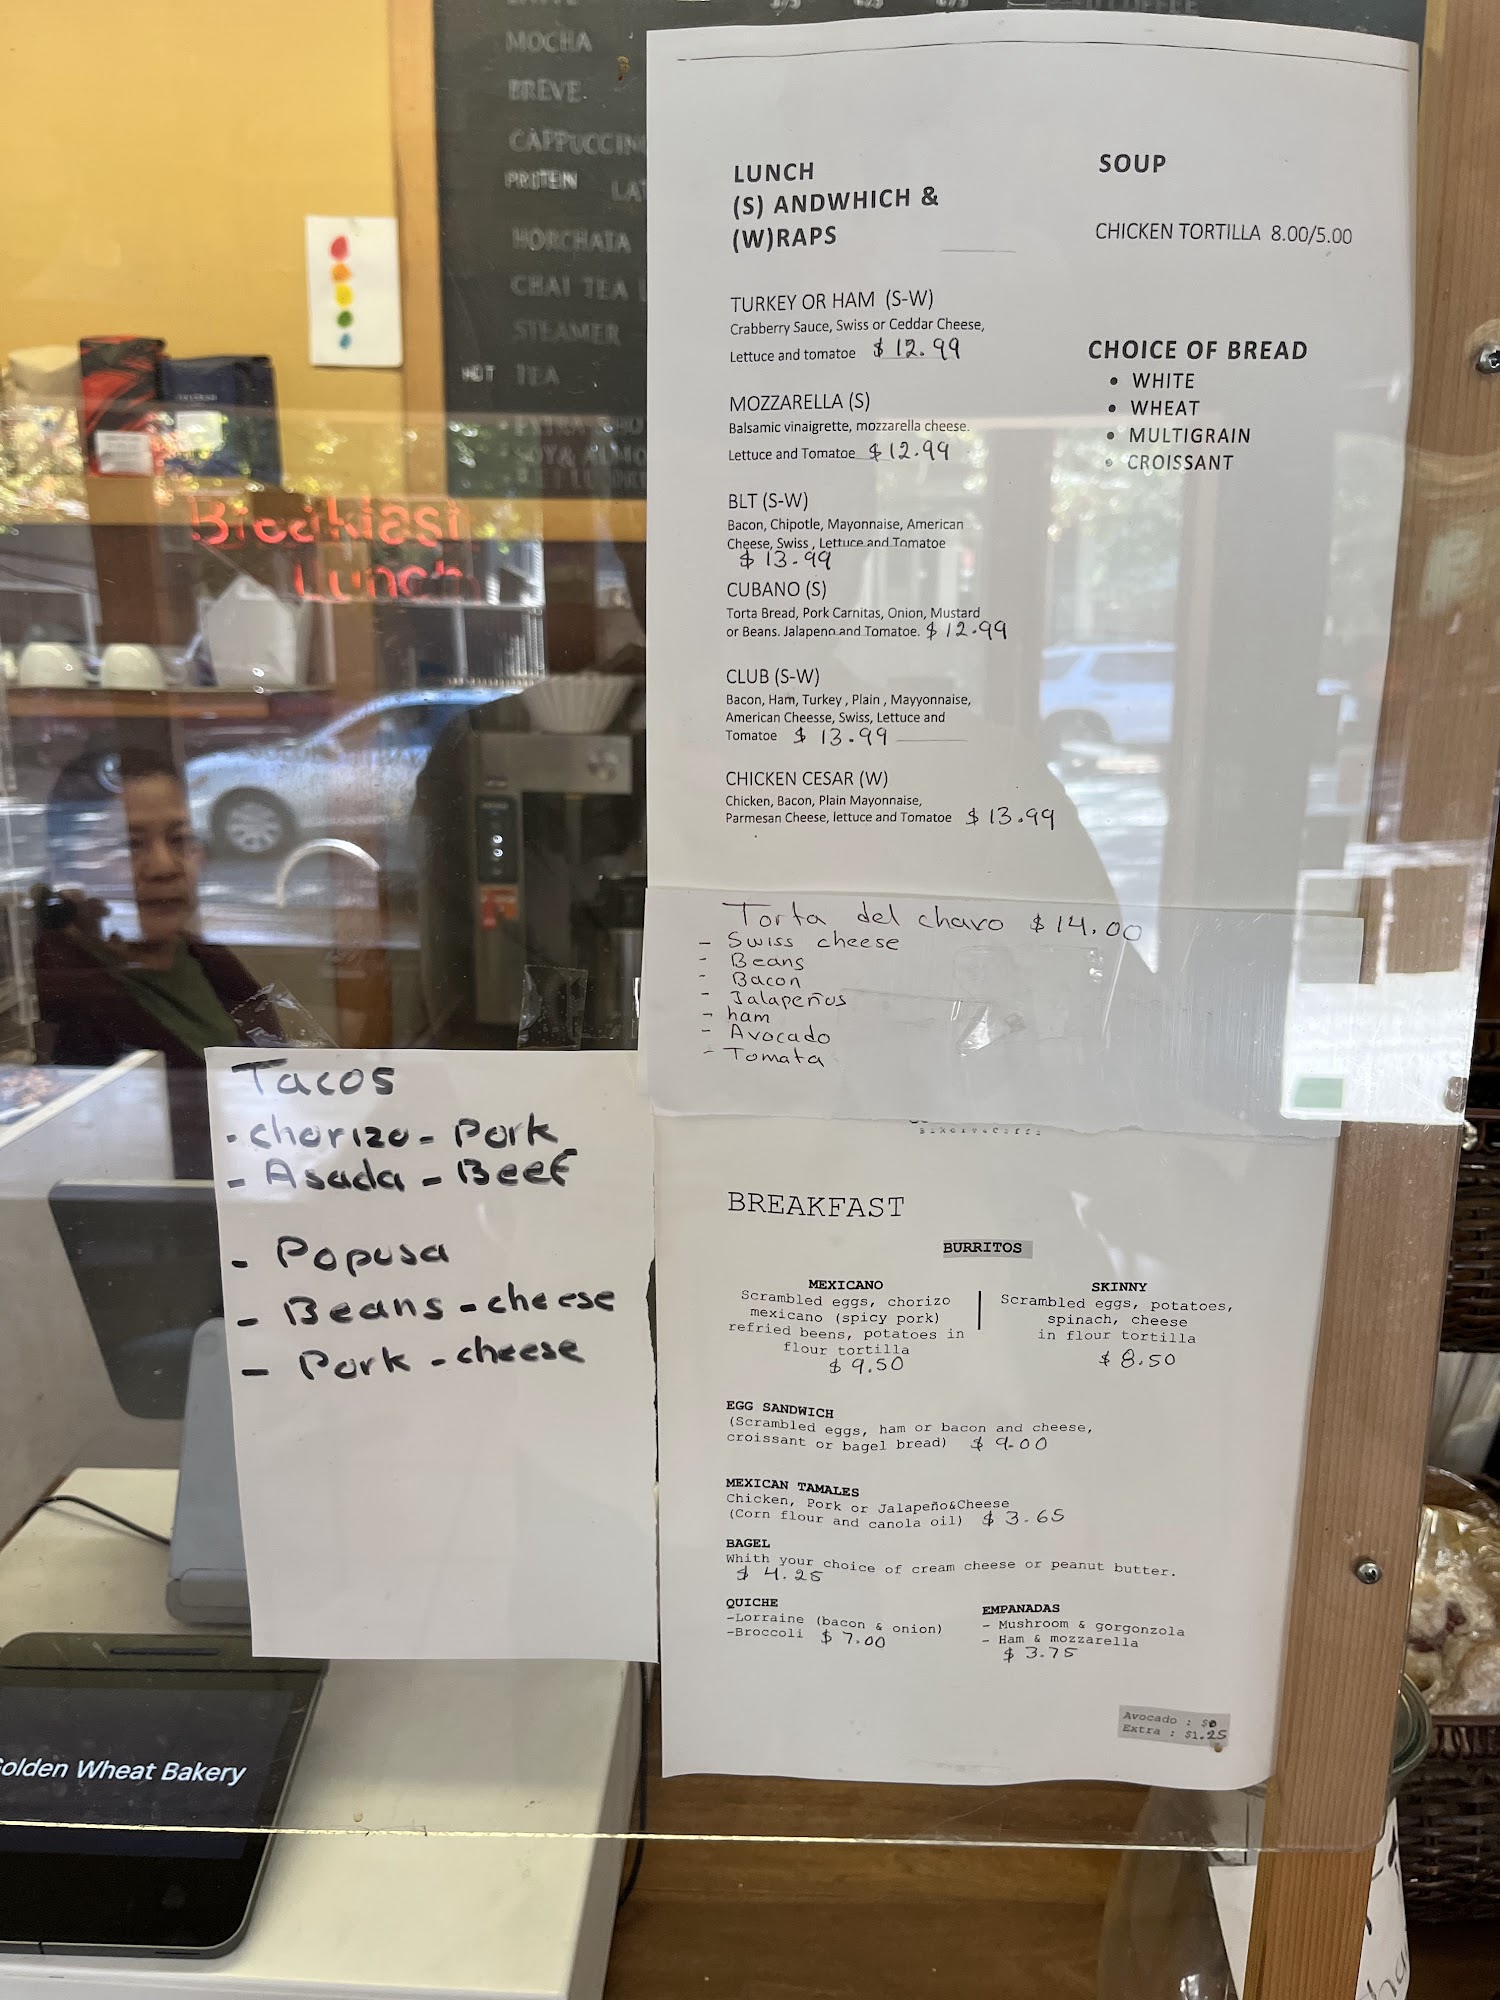 MOCHA
BREVE
CAPPUCCIN
PROTEIN LA
HORCHATA
CHAI TEA L
STEAMER
HOT TEA
Breakfast
Lunch
LUNCH
(S) ANDWHICH &
(W)RAPS
TURKEY OR HAM (S-W)
Crabberry Sauce, Swiss or Ceddar Cheese,
Lettuce and tomatoe $ 12.99
MOZZARELLA (S)
Balsamic vinaigrette, mozzarella cheese.
Lettuce and Tomatoe $ 12.99
BLT (S-W)
Bacon, Chipotle, Mayonnaise, American
Cheese, Swiss , Lettuce and Tomatoe
$ 13.99
CUBANO (S)
Torta Bread, Pork Carnitas, Onion, Mustard
or Beans. Jalapeno and Tomatoe. $ 12.99
CLUB (S-W)
Bacon, Ham, Turkey , Plain , Mayyonnaise,
American Cheesse, Swiss, Lettuce and
Tomatoe $ 13.99
CHICKEN CESAR (W)
Chicken, Bacon, Plain Mayonnaise,
Parmesan Cheese, lettuce and Tomatoe $ 13.99
SOUP
CHICKEN TORTILLA 8.00/5.00
CHOICE OF BREAD
• WHITE
• WHEAT
• MULTIGRAIN
• CROISSANT
Torta del chavo $ 14.00
- Swiss cheese
- Beans
- Bacon
- Jalapeños
- ham
- Avocado
- Tomata
Tacos
- chorizo - Pork
- Asada - Beef
- Popusa
- Beans - cheese
- Pork - cheese
BREAKFAST
BURRITOS
MEXICANO
Scrambled eggs, chorizo
mexicano (spicy pork)
refried beens, potatoes in
flour tortilla
$ 9.50
SKINNY
Scrambled eggs, potatoes,
spinach, cheese
in flour tortilla
$ 8.50
EGG SANDWICH
(Scrambled eggs, ham or bacon and cheese,
croissant or bagel bread) $ 9.00
MEXICAN TAMALES
Chicken, Pork or Jalapeño&Cheese
(Corn flour and canola oil) $ 3.65
BAGEL
Whith your choice of cream cheese or peanut butter.
$ 4.25
QUICHE
-Lorraine (bacon & onion)
-Broccoli $ 7.00
EMPANADAS
- Mushroom & gorgonzola
- Ham & mozzarella
$ 3.75
Avocado :
Extra : $1.25
olden Wheat Bakery